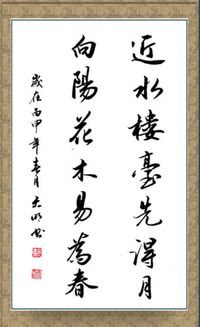 近水樓臺先得月
向陽花木易為春
歲在丙申年春月 大明书